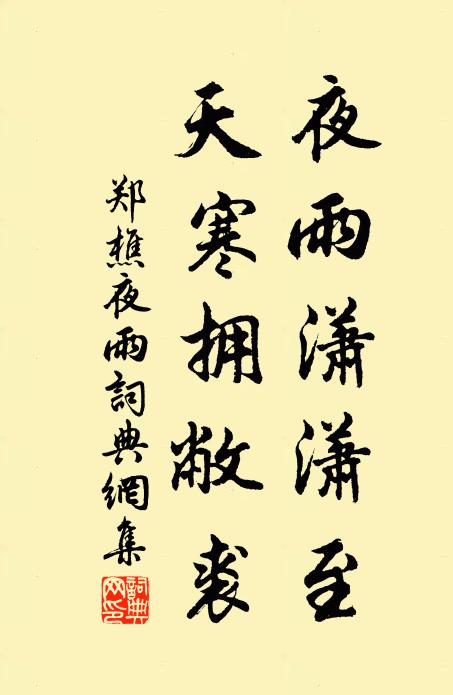 夜雨瀟瀟至
天寒拥敝裘
郑樵夜雨詞典網集
詞典网印